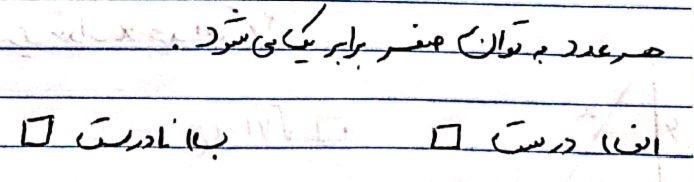 هر عدد به توان صفر برابر یک می شود.
الف) درست □ ب) نادرست □